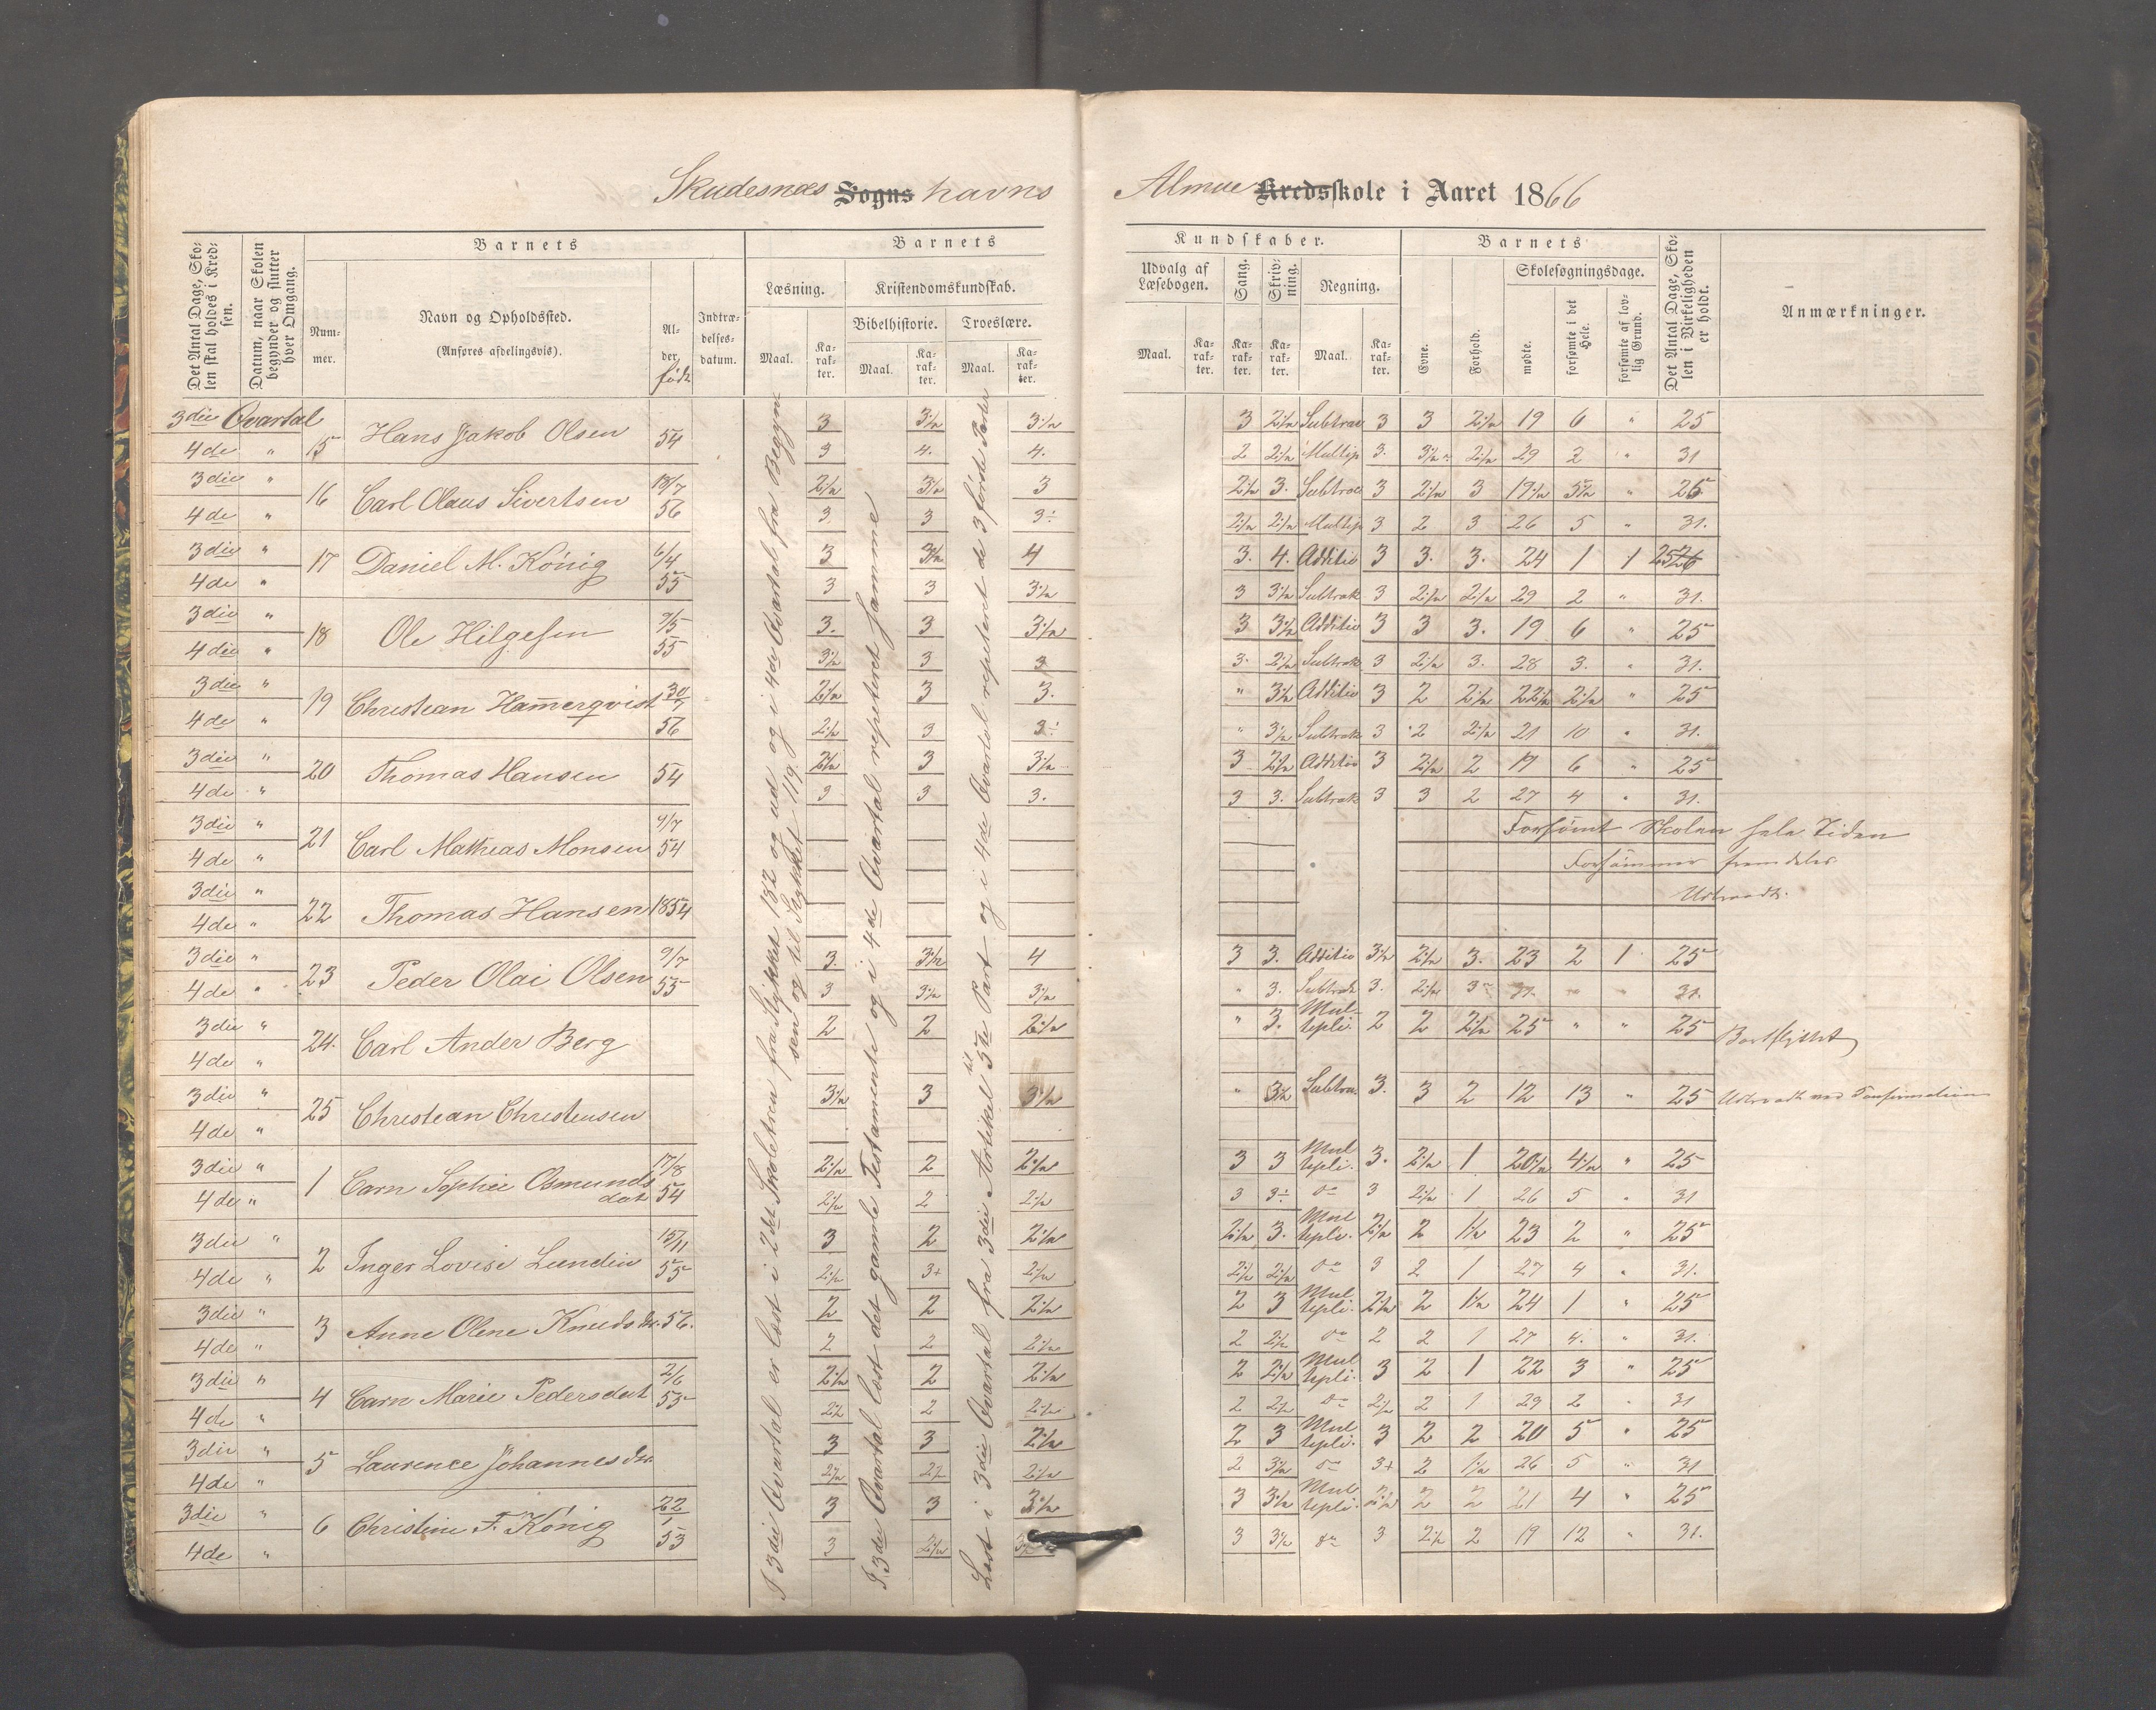 Skudesnæs Sogns havns
Almue Kredsskole i Aaret 1866
Det Antal Dage, Sko-
len skal holdes i Kred-
sen.
Datum, naar Skolen
begynder og slutter
hver Omgang.
Barnets
Num-
mer.
Navn og Opholdssted.
(Anføres afdelingsvis).
Al-
der.
født
Indtræ-
delses-
datum.
Barnets
Læsning.
Maal.
Ka-
rak-
ter.
Kristendomskundskab.
Bibelhistorie.
Maal.
Ka-
rak-
ter.
Troeslære.
Maal.
Ka-
rak-
ter.
Kundskaber.
Udvalg af
Læsebogen.
Maal.
Ka-
rak-
ter.
Sang.
Ka-
rak-
ter.
Skriv-
ning.
Ka-
rak-
ter.
Regning.
Maal.
Ka-
rak-
ter.
Barnets
Evne.
Forhold.
Skolesøgningsdage.
mødte.
forsømte i det
Hele.
forsømte af lov-
lig Grund.
Det Antal Dage, Sko-
len i Virkeligheden
er holdt.
Anmærkninger.
3die Qvartal 15 Hans Jakob Olsen 54 3 3½ 3½ 3 2½ Subtrac 3 3 2½ 19 6 " 25
4de " 3 4. 4. 2 2½ Multip 3. 3½ 2½ 29 2 " 31
3die " 16 Carl Olaus Sivertsen 18/7 56 2½ 3½ 3 2½ 3. Subtrac 3 2½ 3 19½ 5½ " 25
4de " 3 3 3÷ 2½ 2½ Multip 3 2 3 26 5 " 31.
3die " 17 Daniel M. König 6/4 55 3 3½ 4 3. 4. Additio 3 3. 3. 24 1 1 25 26
4de " 3 3 3½ 3 3½ Subtrak 3 2½ 2½ 29 2 " 31.
3die " 18 Ole Hilgesen 7/5 55 3. 3 3½ 3 3½ Additio 3 3 3. 19 6 " 25
4die " 3½ 3 3 3. 2½ Subtrak 3 2½ 3. 28 3. " 31.
3die " 19 Christian Hamerqvist 30/7 56 2½ 3 3. " 3½ Additio 3 2 2½ 22½ 2½ " 25
4de " 2½ 3 3÷ " 3½ Subtrak 3 2 2½ 21 10 " 31.
3die " 20 Thomas Hansen 54 2½ 3 3½ 3 2½ Additio 3 2½ 2 19 6 " 25
4de " 3 3 3. 3 3. Subtrak 3 3 2 27 4 " 31.
3die " 21 Carl Mathias Monsen 4/7 54 Forsömt Skolen hele Tiden
4de " Forsömmer fremdeles
3die " 22 Thomas Hansen 1854 Udtraadt.
4de "
3die " 23 Peder Olai Olsen 9/7 55 3. 3½ 4 3 3. Additio 3½ 2½ 3. 23 2 1 25
4de " 3 3½ 3½ " 3. Subtrak 3. 2½ 3 31. " " 31.
3die " 24. Carl Ander Berg 2 2 2½ " 3. Mul-
tepli. 2 2 2½ 25 " " 25 Bortflyttet
4de "
3die " 25 Christian Christensen 3½ 3 3½ " 3½ Subtra. 3. 3 2 12 13 " 25 Udtraadt ved Confirmation
4de "
3die " 1 Carn Sophie Osmunds
dat 17/8 54 2½ 2 2½ 3 3 Mul
tepli. 3. 2½ 1 20½ 4½ " 25
4de " 2½ 2 2½ 3 3÷ do 3 2½ 1 26 5 " 31
3die " 2 Inger Lovise Lundin 15/11 55 3 2 2½ 2½ 3. Mul
tepli. 2½ 2 1½ 23 2 " 25
4de " 2½ 3+ 2½ 2½ 2½ do 3 2 1 27 4 " 31.
3die " 3 Anne Olene Knudsdr. 56. 2 2 2½ 2 3 Mul
tepli. 2½ 2 1½ 24 1 " 25
4de " 2 2 2½ 2 2½ do 2 2 1 27 4. " 31.
3die " 4 Carn Marie Pedersdat 2/6 53 2½ 2 2½ 2 2½ Mul
tepli. 3 2 1 22 3 " 25
4de " 2½ 2 2½ 2 2½ do 2½ 2 1 29 2 " 31
3die " 5 Laurence Johannesdr. 3 3 2½ 2 3 Mul
tepli. 3 2 2 20 5 " 25
4de " 2½ 2½ 2½ 2 3½ do 3+ 2 1½ 26 5 " 31
3die " 6 Christine F. König 22/1 53 3 3 3½ 3 3½ Mul
tepli. 2½ 2 2 21 4 " 25
4de " 3 2½ 3½ 3 3½ do 3 2½ 2 19 12 " 31.
I 3die Qvartal er læst i 2det Skoletrin fra Stykket 132 og ud og i 4de Qvartal fra Begyn-
sen og til Stykket 119.
I 3die Qvartal læst det gamle Testamente og i 4de Qvartal repeteret samme
Læst i 3die Qvartal fra 3die Artikel til 5te Part og i 4de Qvartal repeteret de 3 første Parter